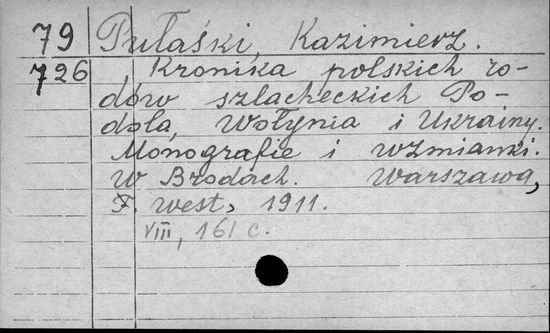 79 Pułaśki, Kazimierz.
726 Kronika polskich ro-
dów szlacheckich Po-
dola, Wołynia i Ukrainy.
Monografie i wzmianki.
W Brodach. Warszawa,
F. west, 1911.
VIII, 161 c.